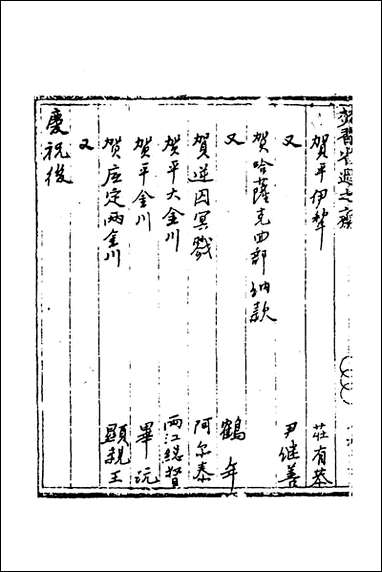 賀平伊犂 莊有恭
又 尹継善
賀哈薩克西部納款
又 鶴年
賀逆囚冥戮 阿尔泰
賀平大金川 兩江総督
賀平金川 畢沅
賀底定兩金川 顯親王
又
慶祝後